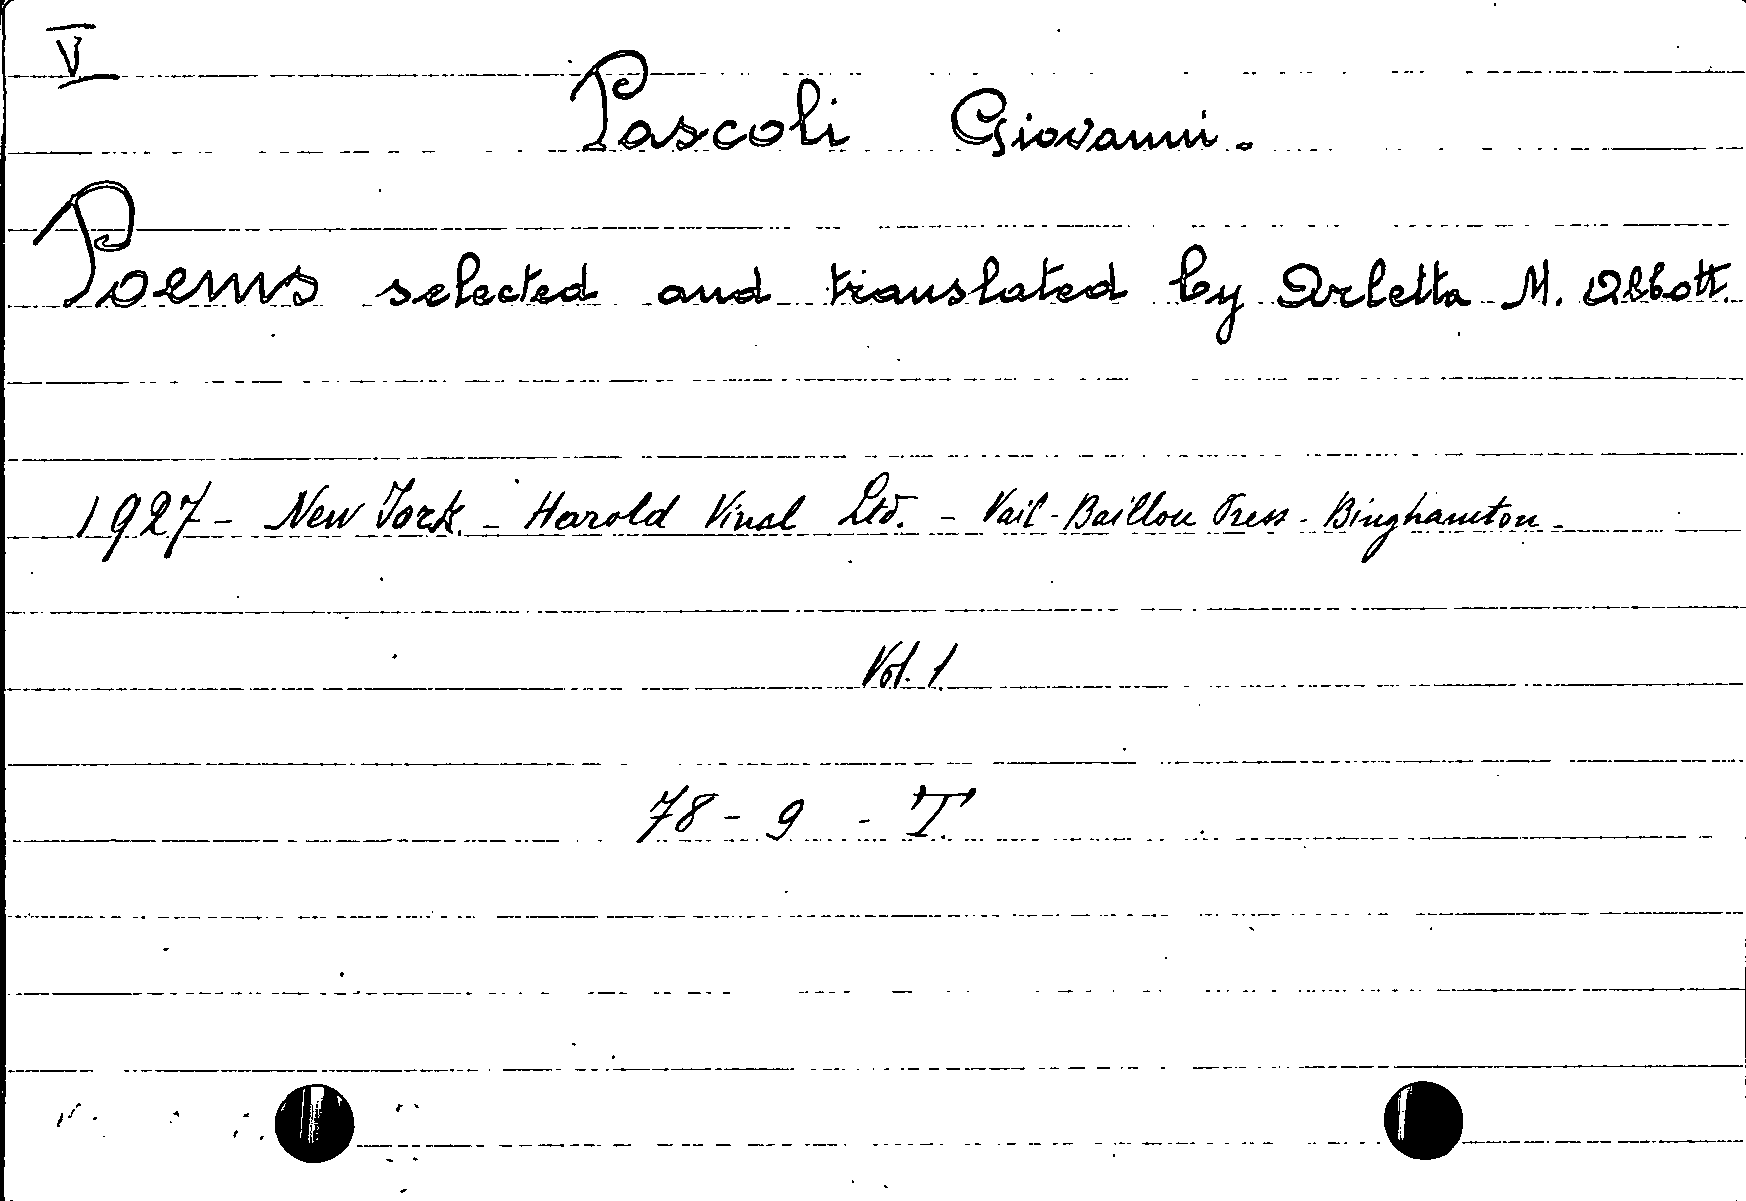 V
Pascoli Giovanni.
Poems selected and translated by Arletta M. Abbott.
1927 - New York. - Harold Vinal Ltd. - Vail-Baillou Press - Binghamton -
Vol. 1
78 - 9 - T.